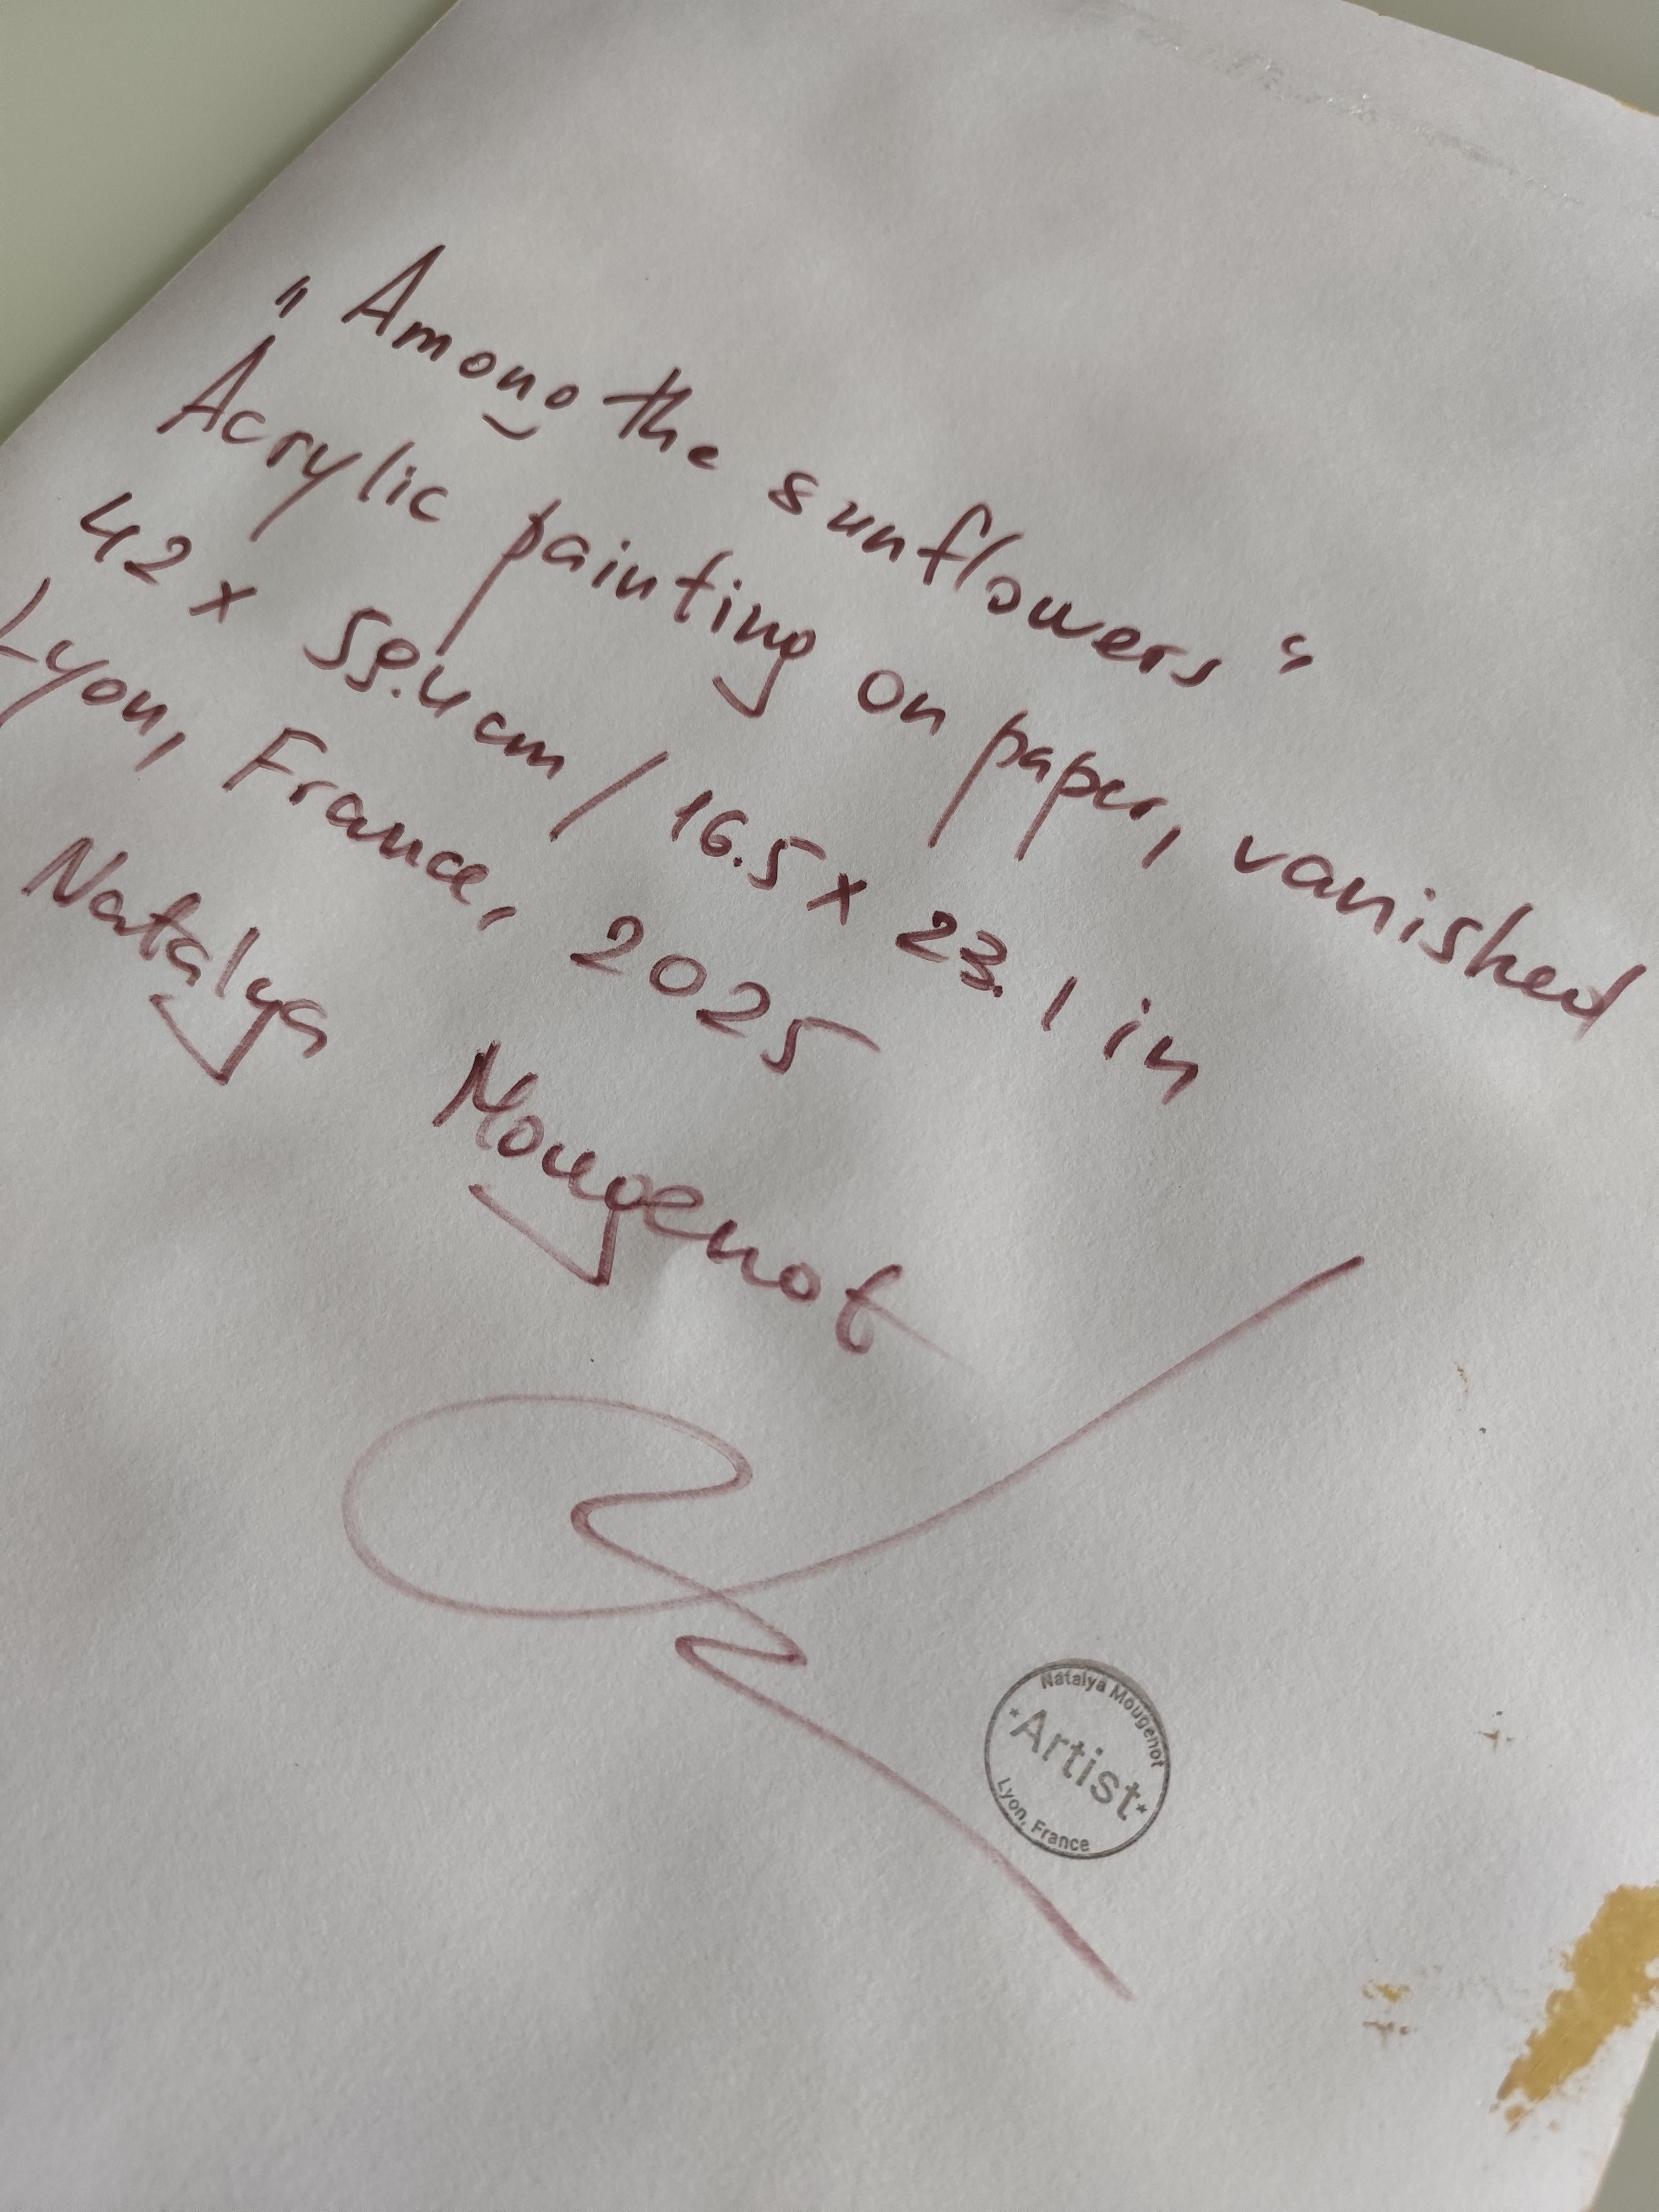 "Among the sunflowers"
Acrylic painting on paper, vanished
42 x 59.4 cm / 16.5 x 23.1 in
Lyon, France, 2025
Natalya Mougenot
Natalya Mougenot
*Artist*
Lyon, France